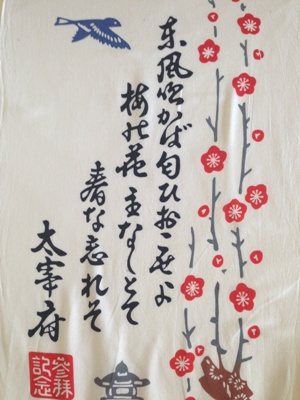 東風吹かば匂ひおこせよ
梅の花 主なしとて
春な忘れそ
太宰府
参拝
記念